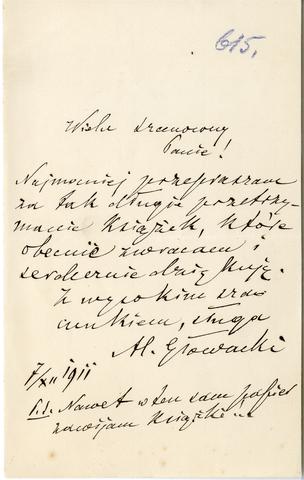 615.
Wielce szanowny
Panie!
Najmocniej przepraszam
za tak długie przetrzy-
manie książek, które
obecnie zwracam i
serdecznie dziękuję.
Z wysokim sza-
cunkiem, sługa
Al. Głowacki
7/XII 1911
P.S. Nawet w ten sam papier
zawijam książki...